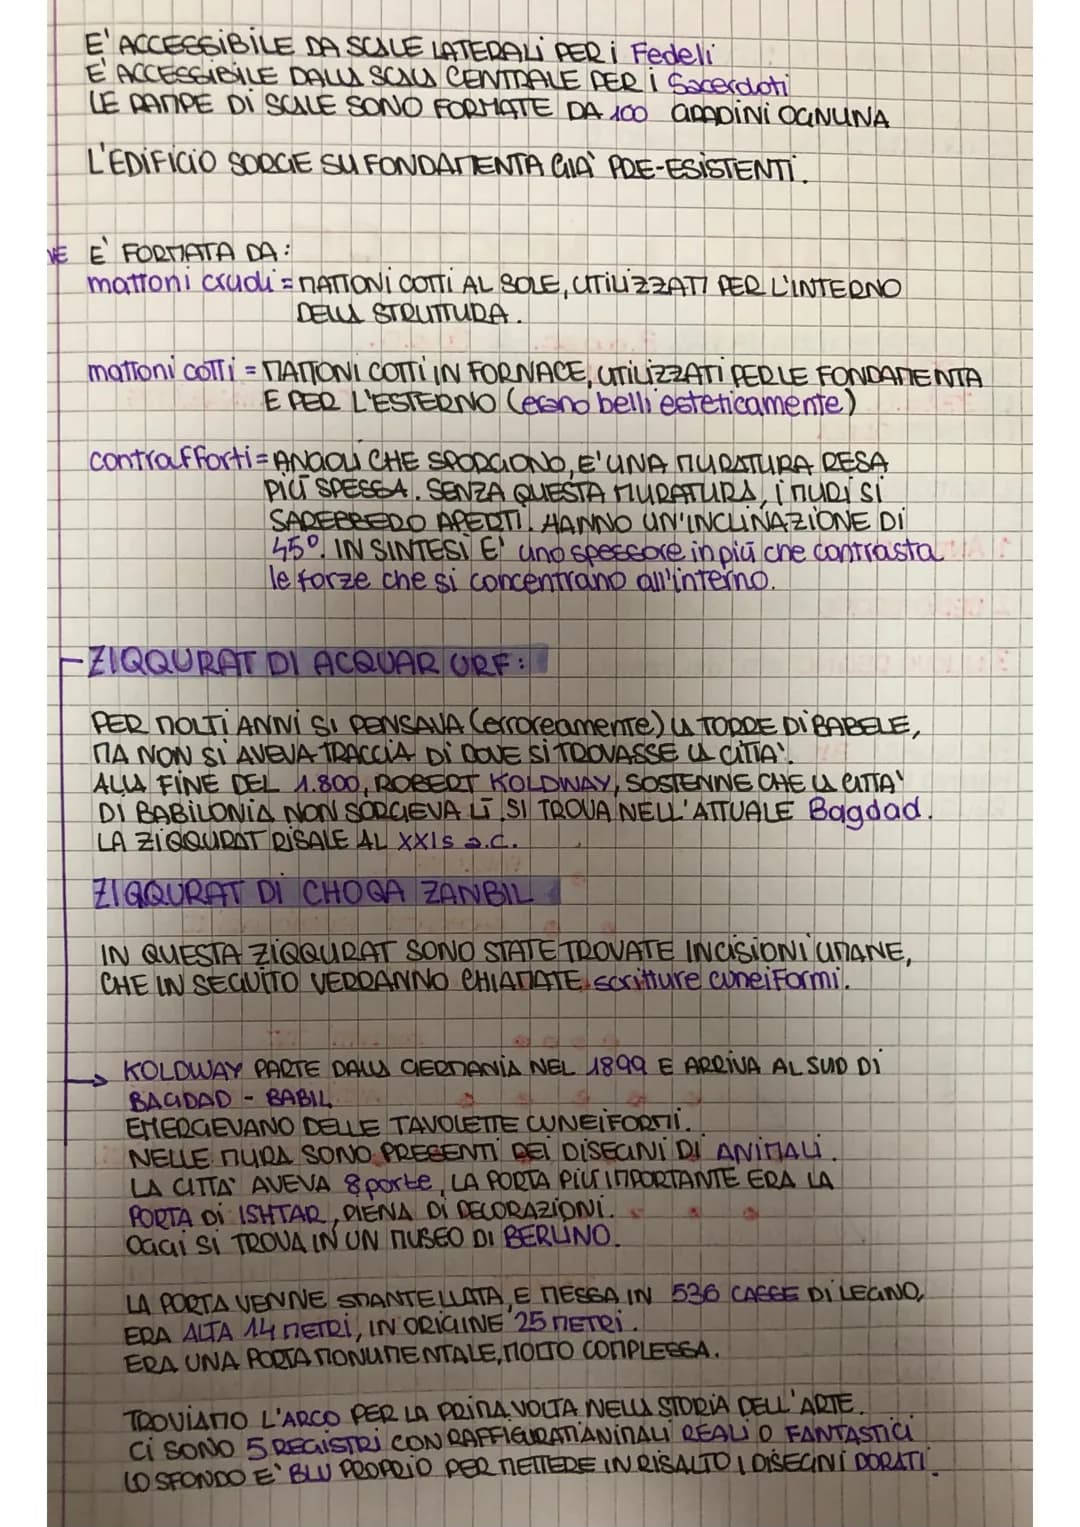 E' ACCESSIBILE DA SCALE LATERALI PER i Fedeli
E' ACCESSIBILE DALLA SCALA CENTRALE PER i Sacerdoti
LE RAMPE DI SCALE SONO FORMATE DA 100 GRADINI OGNUNA
L'EDIFICIO SORGE SU FONDAMENTA GIA' PRE-ESISTENTI.
VE E' FORMATA DA:
mattoni crudi = MATTONI COTTI AL SOLE, UTILIZZATI PER L'INTERNO
DELLA STRUTTURA.
mattoni cotti = MATTONI COTTI IN FORNACE, UTILIZZATI PER LE FONDAMENTA
E PER L'ESTERNO (erano belli esteticamente)
contrafforti = ANGOLI CHE SPORGONO, E' UNA MURATURA RESA
PIÙ SPESSA. SENZA QUESTA MURATURA, i MURI SI
SAREBBERO APERTI. HANNO UN'INCLINAZIONE DI
45°. IN SINTESI E' uno spessore in più che contrasta
le forze che si concentrano all'interno.
- ZIQQURAT DI ACQUAR URF:
PER MOLTI ANNI SI PENSAVA (erroreamente) LA TORRE DI BABELE,
MA NON SI AVEVA TRACCIA DI DOVE SI TROVASSE LA CITTA'.
ALLA FINE DEL 1.800, ROBERT KOLDWAY, SOSTENNE CHE LA CITTA'
DI BABILONIA NON SORGEVA LÌ. SI TROVA NELL'ATTUALE Bagdad.
LA ZIQQURAT RISALE AL XXI s a.C.
ZIQQURAT DI CHOGA ZANBIL
IN QUESTA ZIQQURAT SONO STATE TROVATE INCISIONI UMANE,
CHE IN SEGUITO VERRANNO CHIAMATE scritture cuneiformi.
→ KOLDWAY PARTE DALLA GERMANIA NEL 1899 E ARRIVA AL SUD DI
BAGDAD - BABIL
EMERGEVANO DELLE TAVOLETTE CUNEIFORMI.
NELLE MURA SONO PRESENTI DEI DISEGNI DI ANIMALI.
LA CITTA' AVEVA 8 porte, LA PORTA PIÙ IMPORTANTE ERA LA
PORTA DI ISHTAR, PIENA DI DECORAZIONI.
OGGI SI TROVA IN UN MUSEO DI BERLINO.
LA PORTA VENNE SMANTELLATA, E MESSA IN 536 CASSE DI LEGNO,
ERA ALTA 14 METRI, IN ORIGINE 25 METRI.
ERA UNA PORTA MONUMENTALE, MOLTO COMPLESSA.
TROVIAMO L'ARCO PER LA PRIMA VOLTA NELLA STORIA DELL'ARTE.
CI SONO 5 REGISTRI CON RAFFIGURATI ANIMALI REALI O FANTASTICI
LO SFONDO E' BLU PROPRIO PER METTERE IN RISALTO I DISEGNI DORATI.